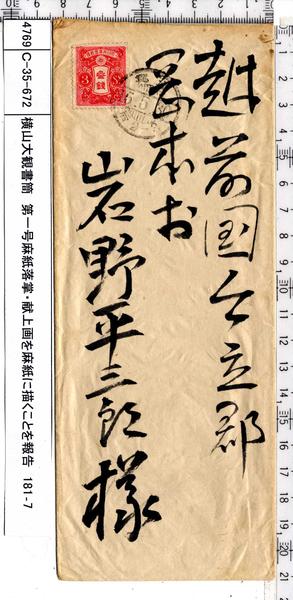 越前国今立郡
岡本村
岩野平三郎様
4769 C-35-672 横山大観書簡 第一号麻紙落掌・献上画を麻紙に描くことを報告 181-7